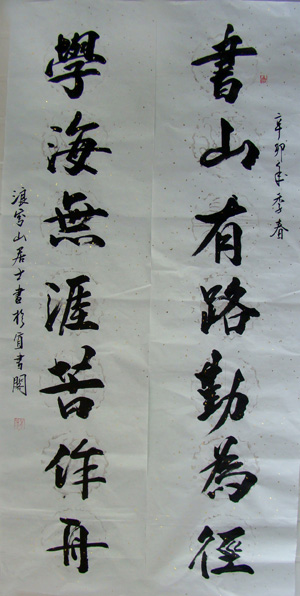 書山有路勤為徑
辛卯年季春
學海無涯苦作舟
山居士書於宜書閣